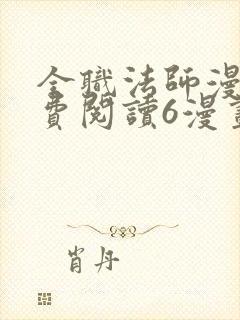 全職法師漫
費閱讀6漫畫
肖丹